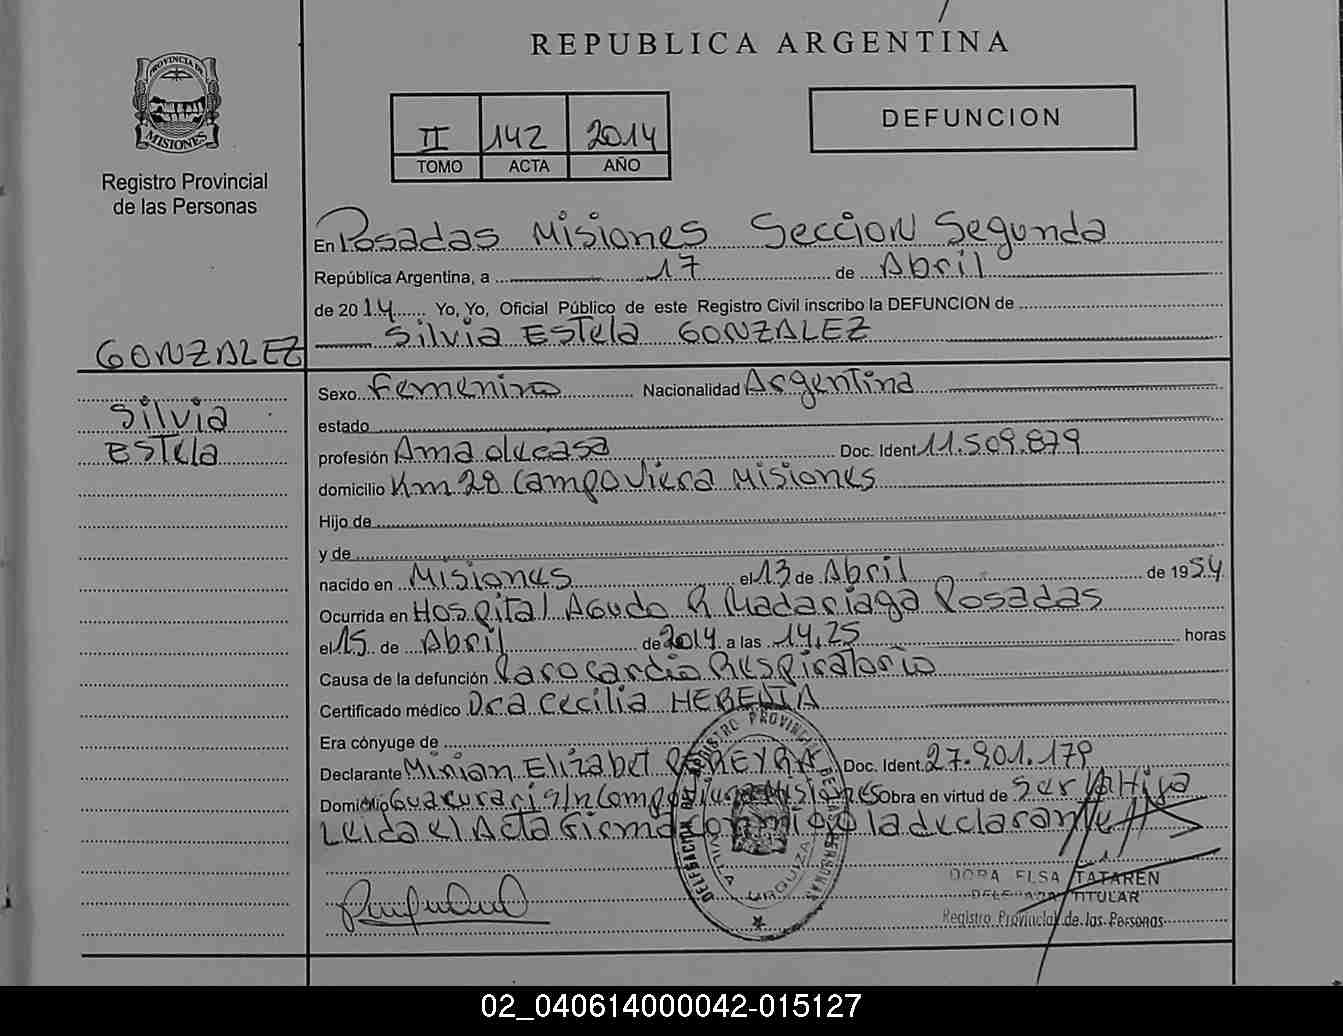 REPUBLICA ARGENTINA
PROVINCIA DE
MISIONES
Registro Provincial
de las Personas
II 142 2014
TOMO ACTA AÑO
DEFUNCION
En Posadas Misiones Sección Segunda
República Argentina, a 17 de Abril
de 2014 Yo, Yo, Oficial Público de este Registro Civil inscribo la DEFUNCION de
Silvia Estela GONZALEZ
GONZALEZ
Silvia
Estela
Sexo Femenino Nacionalidad Argentina
estado
profesión Ama de casa Doc. Ident 11.509.879
domicilio Km 28 Campo Viera Misiones
Hijo de
y de
nacido en Misiones el 13 de Abril de 1954
Ocurrida en Hospital Agudo R Madariaga Posadas
el 15 de Abril de 2014 a las 14,25 horas
Causa de la defunción Paro Cardio Respiratorio
Certificado médico Dra Cecilia
Era cónyuge de
Declarante Mirian Elizabet PEREYRA Doc. Ident. 27.901.179
Domicilio Guacurari s/n Campo Viera Misiones Obra en virtud de ser
Leida el Acta Firma conmigo la declarante
REGISTRO PROVINCIAL DE LAS PERSONAS
DELEGACION
VILLA URQUIZA
DORA ELSA TATAREN
DELEGADA TITULAR
Registro Provincial de las Personas
02_040614000042-015127